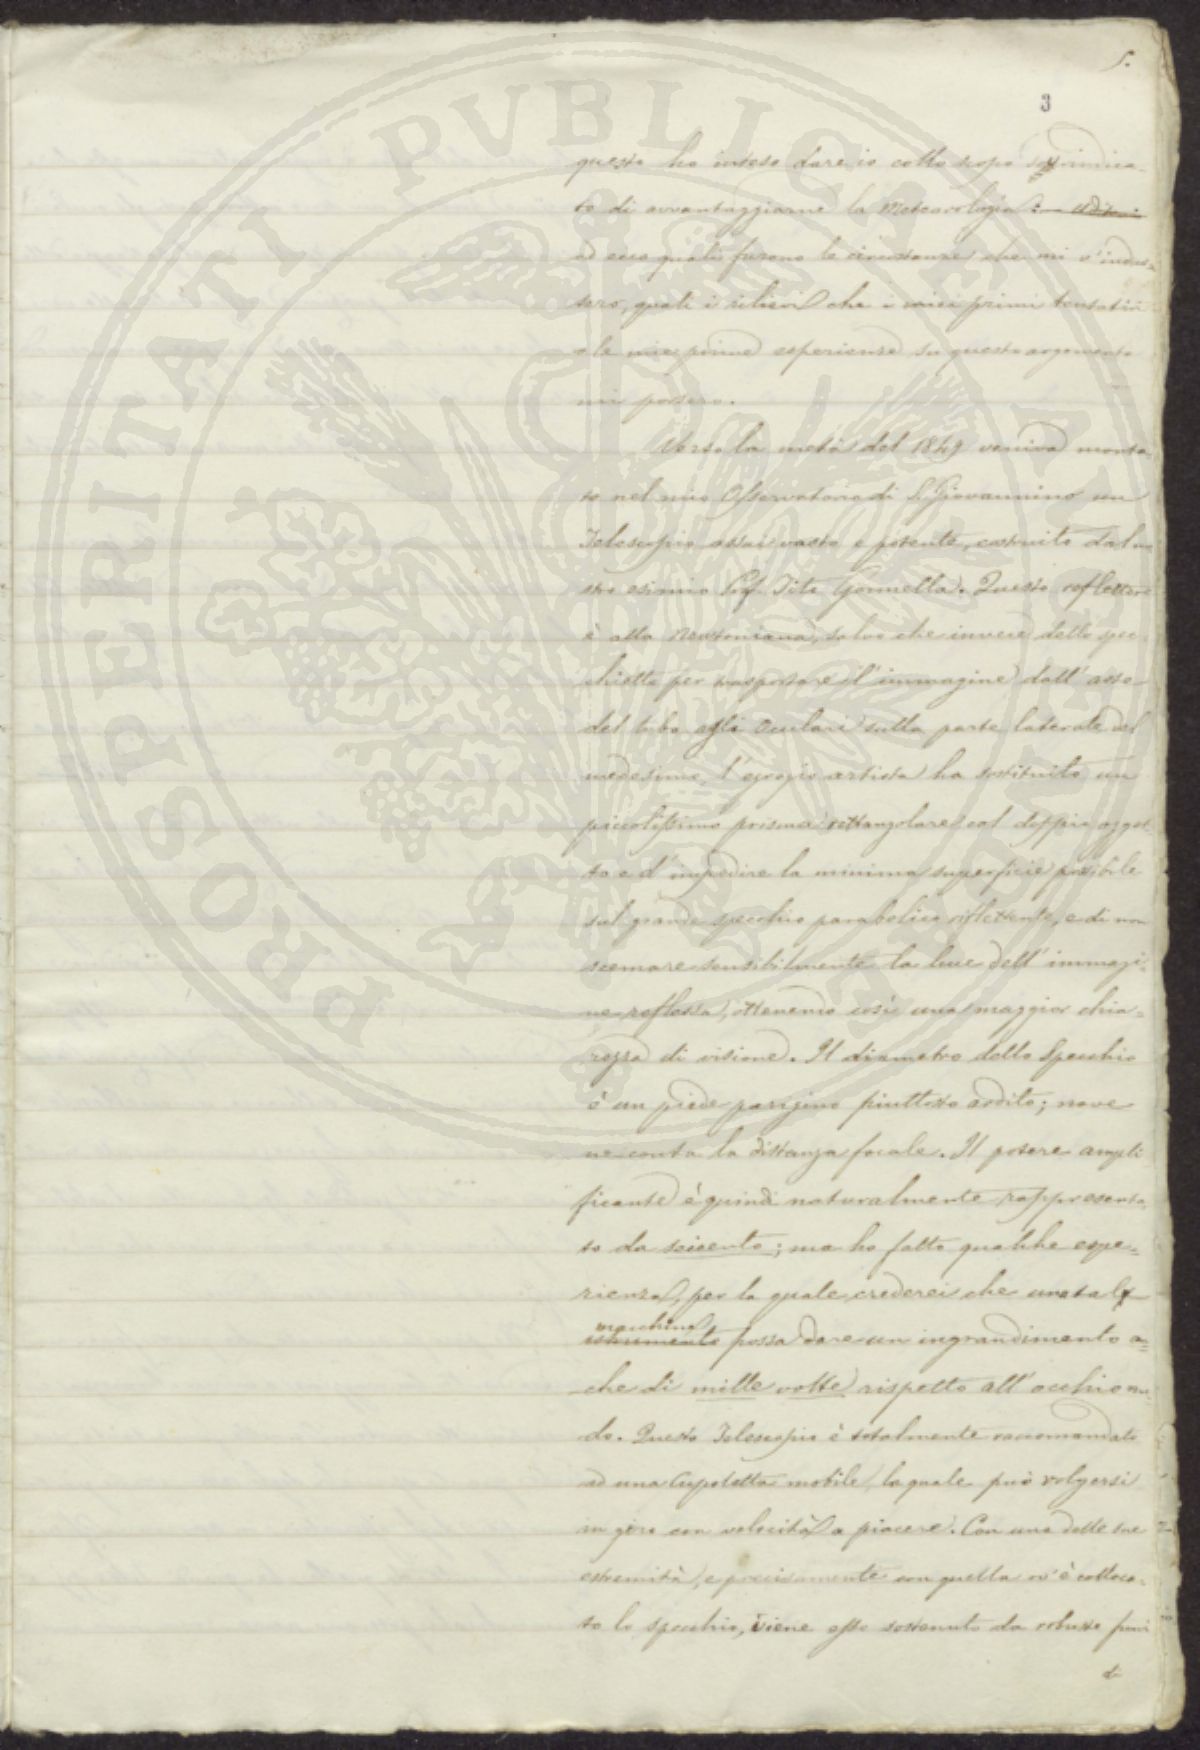 5.
3
questo ho inteso dare io collo scopo so indica-
to di avvantaggiarne la Meteorologia:
ed ecco quali furono le circostanze che mi v'indus-
sero, quali i rilievi che i miei primi tentativi
e le mie prime esperienze su questo argomento
mi porsero.
Verso la metà del 1849 veniva monta-
to nel mio Osservatorio di S. Giovannino un
Telescopio assai vasto e potente, costruito dal no-
stro esimio Prof. Tito Gonnella. Questo reflettore
è alla Newtoniana, salvo che invece dello spec-
chietto per trasportare l'immagine dall'asse
del tubo agli Oculari sulla parte laterale del
medesimo, l'egregio artista ha sostituito un
piccolissimo prisma rettangolare col doppio ogget-
to e d'impedire la minima superficie possibile
sul grande specchio parabolico riflettente, e di non
scemare sensibilmente la luce dell'immagi-
ne reflessa, ottenendo così una maggior chia=
rezza di visione. Il diametro dello Specchio
è un piede parigino piuttosto ardito; nove
ne conta la distanza focale. Il potere ampli
ficante è quindi naturalmente rappresenta-
to da seicento; ma ho fatto qualche espe=
rienza, per la quale crederei che una tal
macchina
istrumento possa dare un ingrandimento an=
che di mille volte rispetto all'occhio nu-
do. Questo Telescopio è totalmente raccomandato
ad una Cupoletta mobile, la quale può volgersi
in giro con velocità a piacere. Con una delle sue
estremità, e precisamente con quella ov'è colloca-
to lo specchio, viene esso sostenuto da robusto
di
PROSPERITATI PVBLICAE